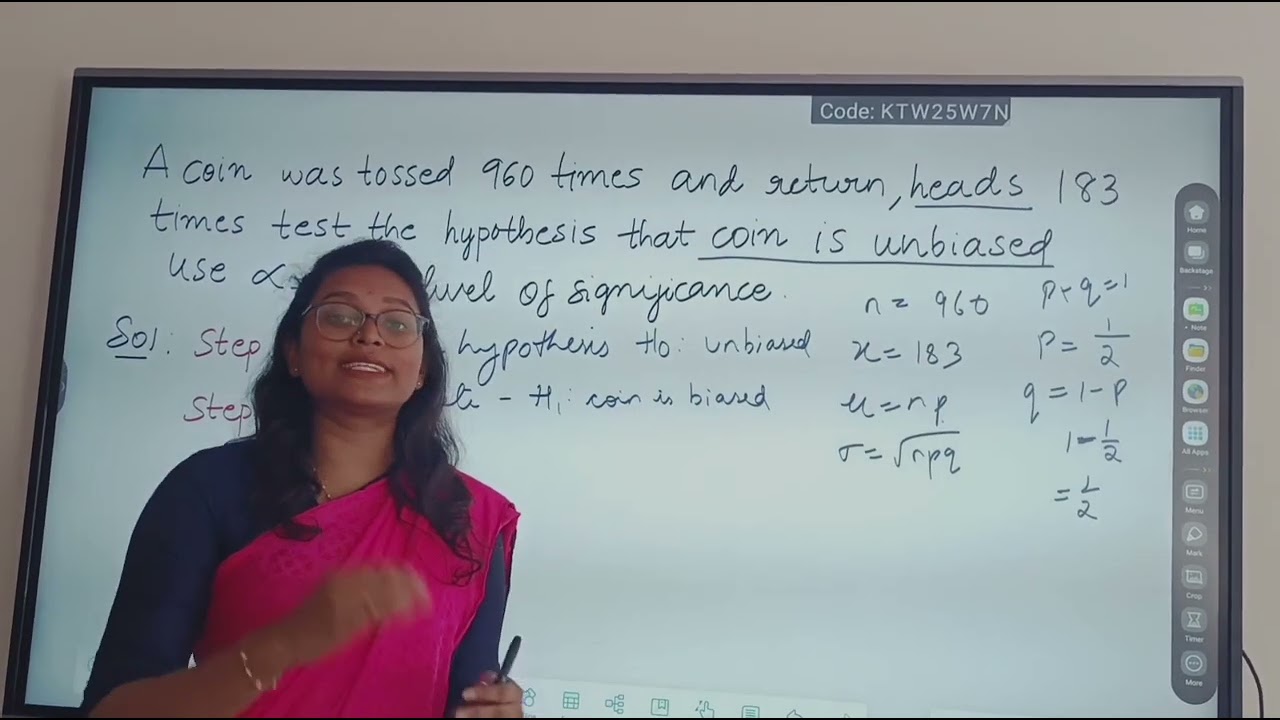 Code: KTW25W7N
A coin was tossed 960 times and return, heads 183
times test the hypothesis that coin is unbiased
use α level of significance.
Sol: Step hypothesis Ho: unbiased
Step - H1: coin is biased
n = 960
x = 183
μ = np
σ = √npq
p + q = 1
p = 1/2
q = 1 - p
1 - 1/2
= 1/2
Home
Backstage
Note
Finder
Browser
All Apps
Menu
Mark
Crop
Timer
More